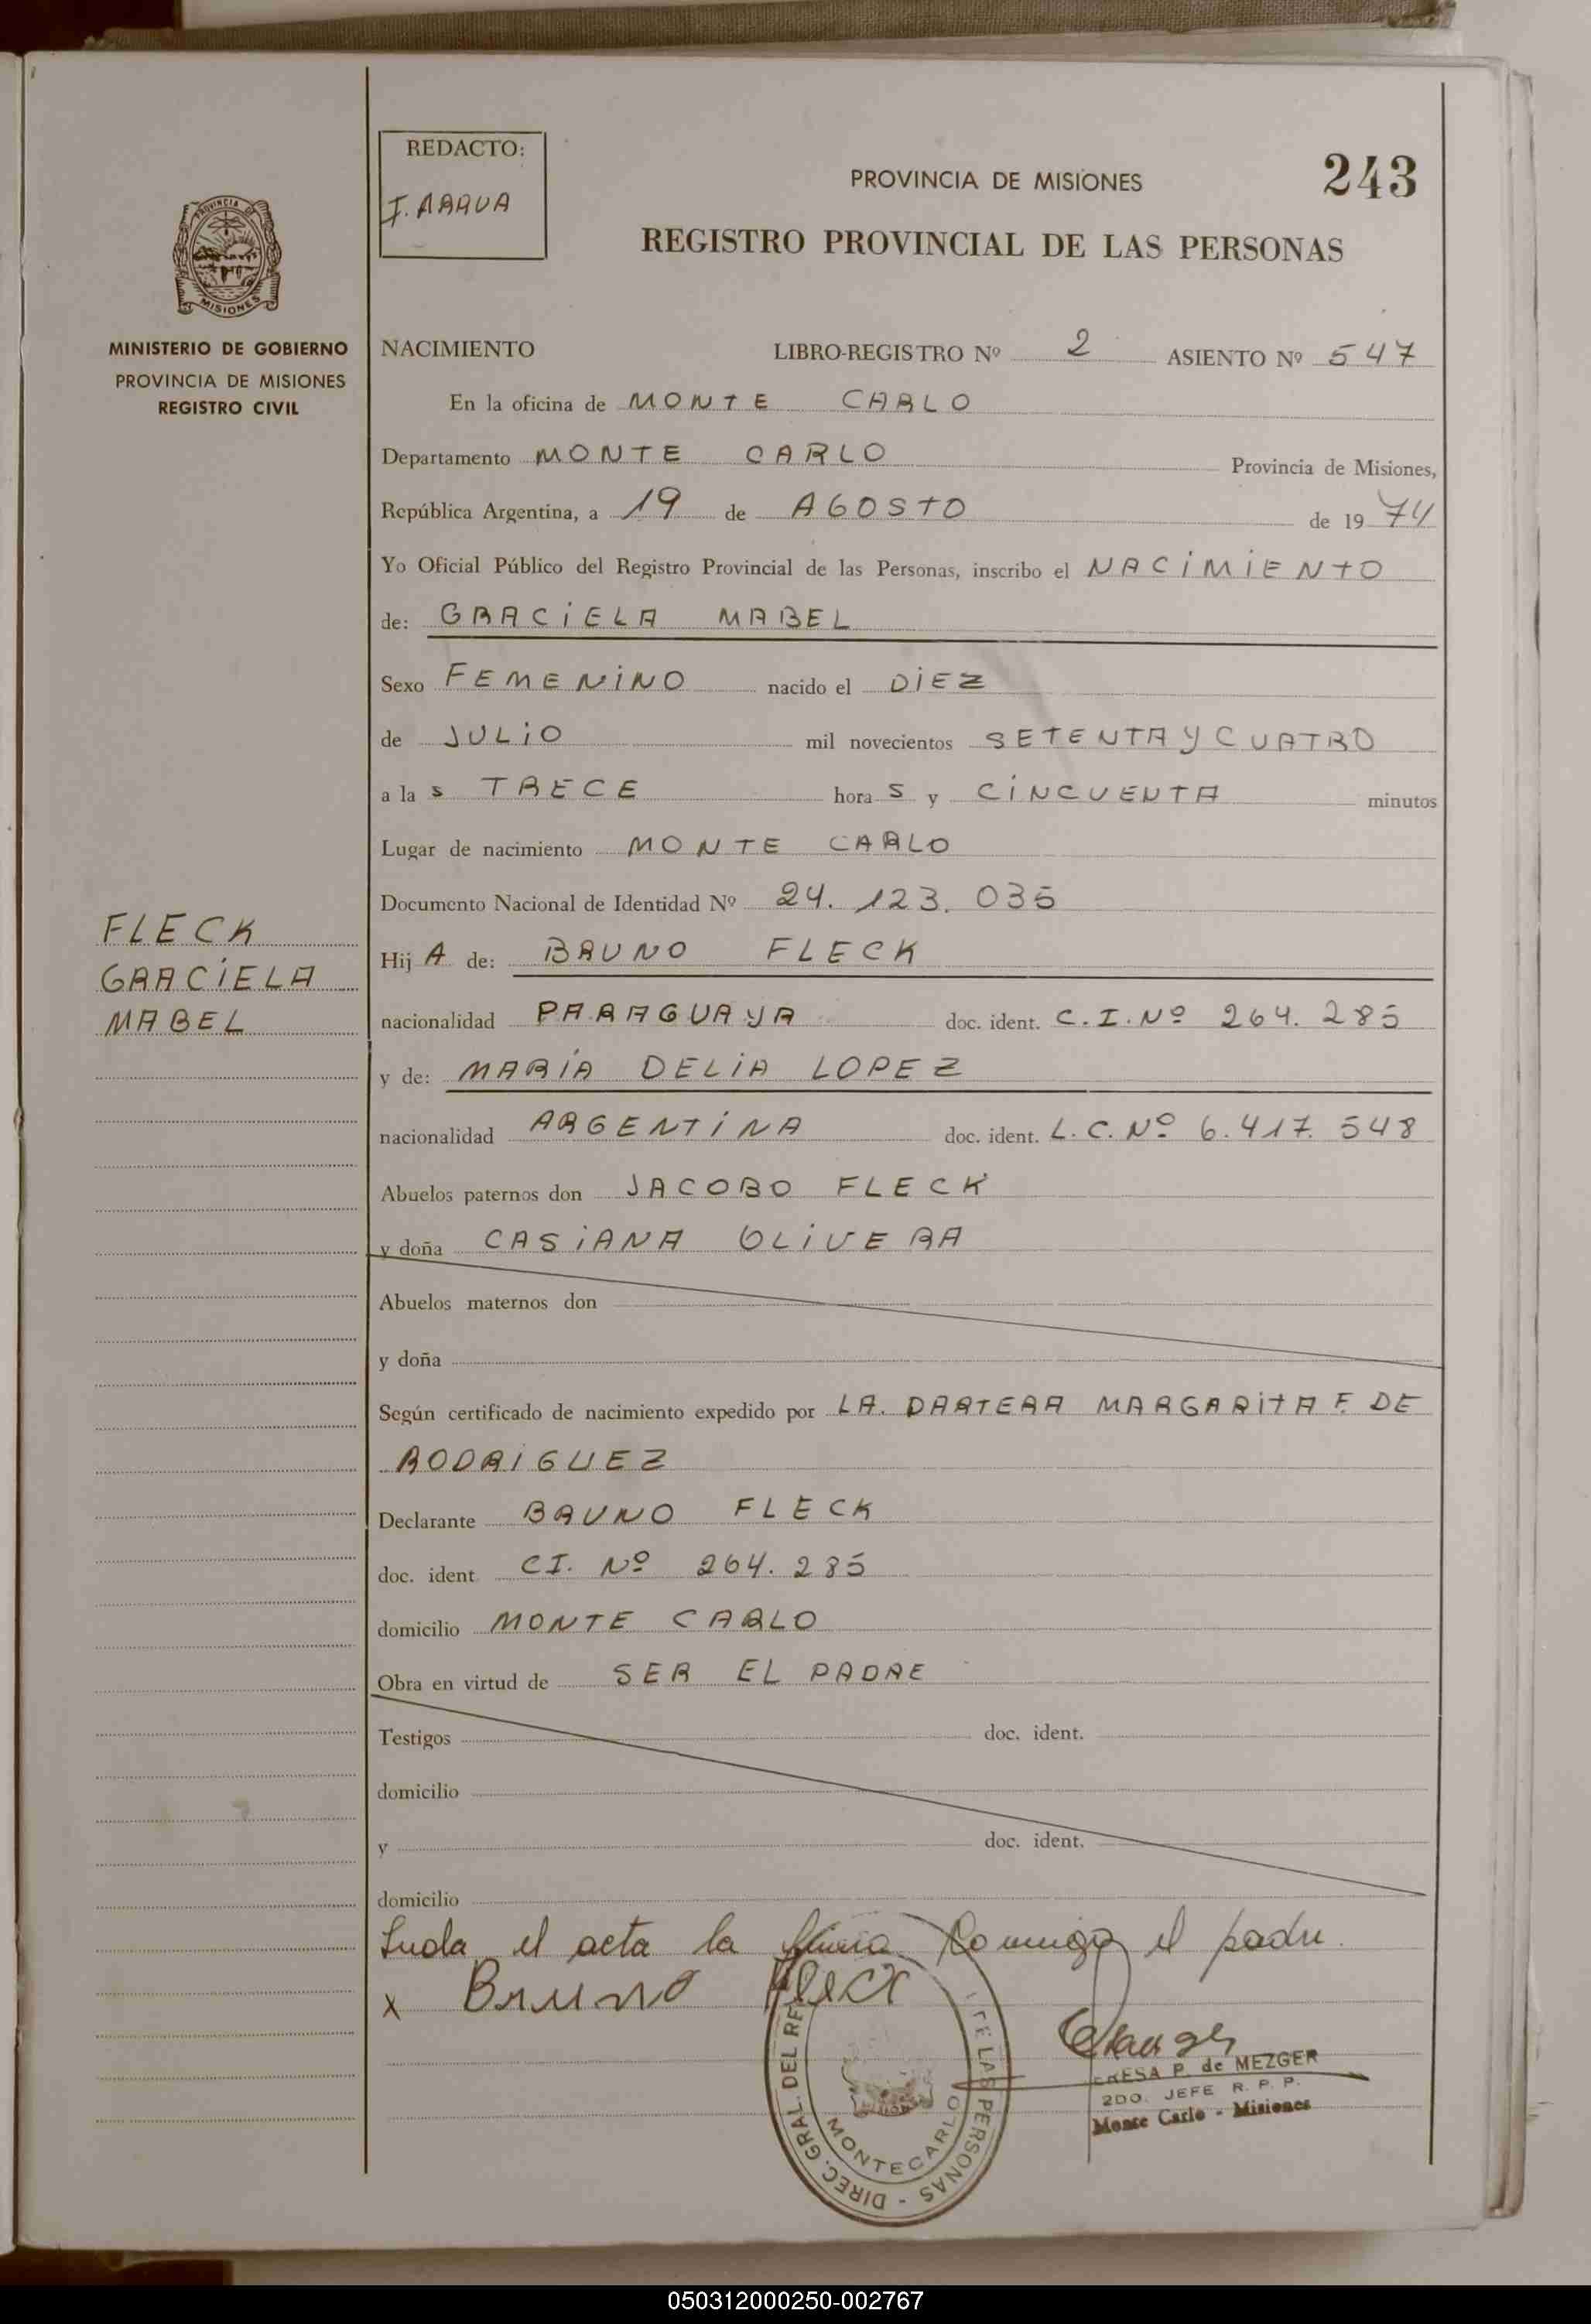 REDACTO:
I. ARRUA
PROVINCIA DE MISIONES
243
REGISTRO PROVINCIAL DE LAS PERSONAS
PROVINCIA DE
MISIONES
MINISTERIO DE GOBIERNO
PROVINCIA DE MISIONES
REGISTRO CIVIL
NACIMIENTO LIBRO-REGISTRO Nº 2 ASIENTO Nº 547
En la oficina de MONTE CARLO
Departamento MONTE CARLO Provincia de Misiones,
República Argentina, a 19 de AGOSTO de 1974
Yo Oficial Público del Registro Provincial de las Personas, inscribo el NACIMIENTO
de: GRACIELA MABEL
Sexo FEMENINO nacido el DIEZ
de JULIO mil novecientos SETENTA Y CUATRO
a las TRECE horas y CINCUENTA minutos
Lugar de nacimiento MONTE CARLO
Documento Nacional de Identidad Nº 24.123.035
FLECK
GRACIELA
MABEL
Hij A de: BRUNO FLECK
nacionalidad PARAGUAYA doc. ident. C.I. Nº 264.285
y de: MARÍA DELIA LOPEZ
nacionalidad ARGENTINA doc. ident. L.C. Nº 6.417.548
Abuelos paternos don JACOBO FLECK
y doña CASIANA OLIVERA
Abuelos maternos don
y doña
Según certificado de nacimiento expedido por LA. PARTERA MARGARITA F. DE
RODRIGUEZ
Declarante BRUNO FLECK
doc. ident. CI. Nº 264.285
domicilio MONTE CARLO
Obra en virtud de SER EL PADRE
Testigos doc. ident.
domicilio
y doc. ident.
domicilio
Leida el acta la firma Conmigo el padre.
x Bruno Fleck
DIREC. GRAL. DEL RE DE LAS PERSONAS -
MONTECARLO
RESA P. de MEZGER
2DO. JEFE R. P. P.
Monte Carlo - Misiones
050312000250-002767